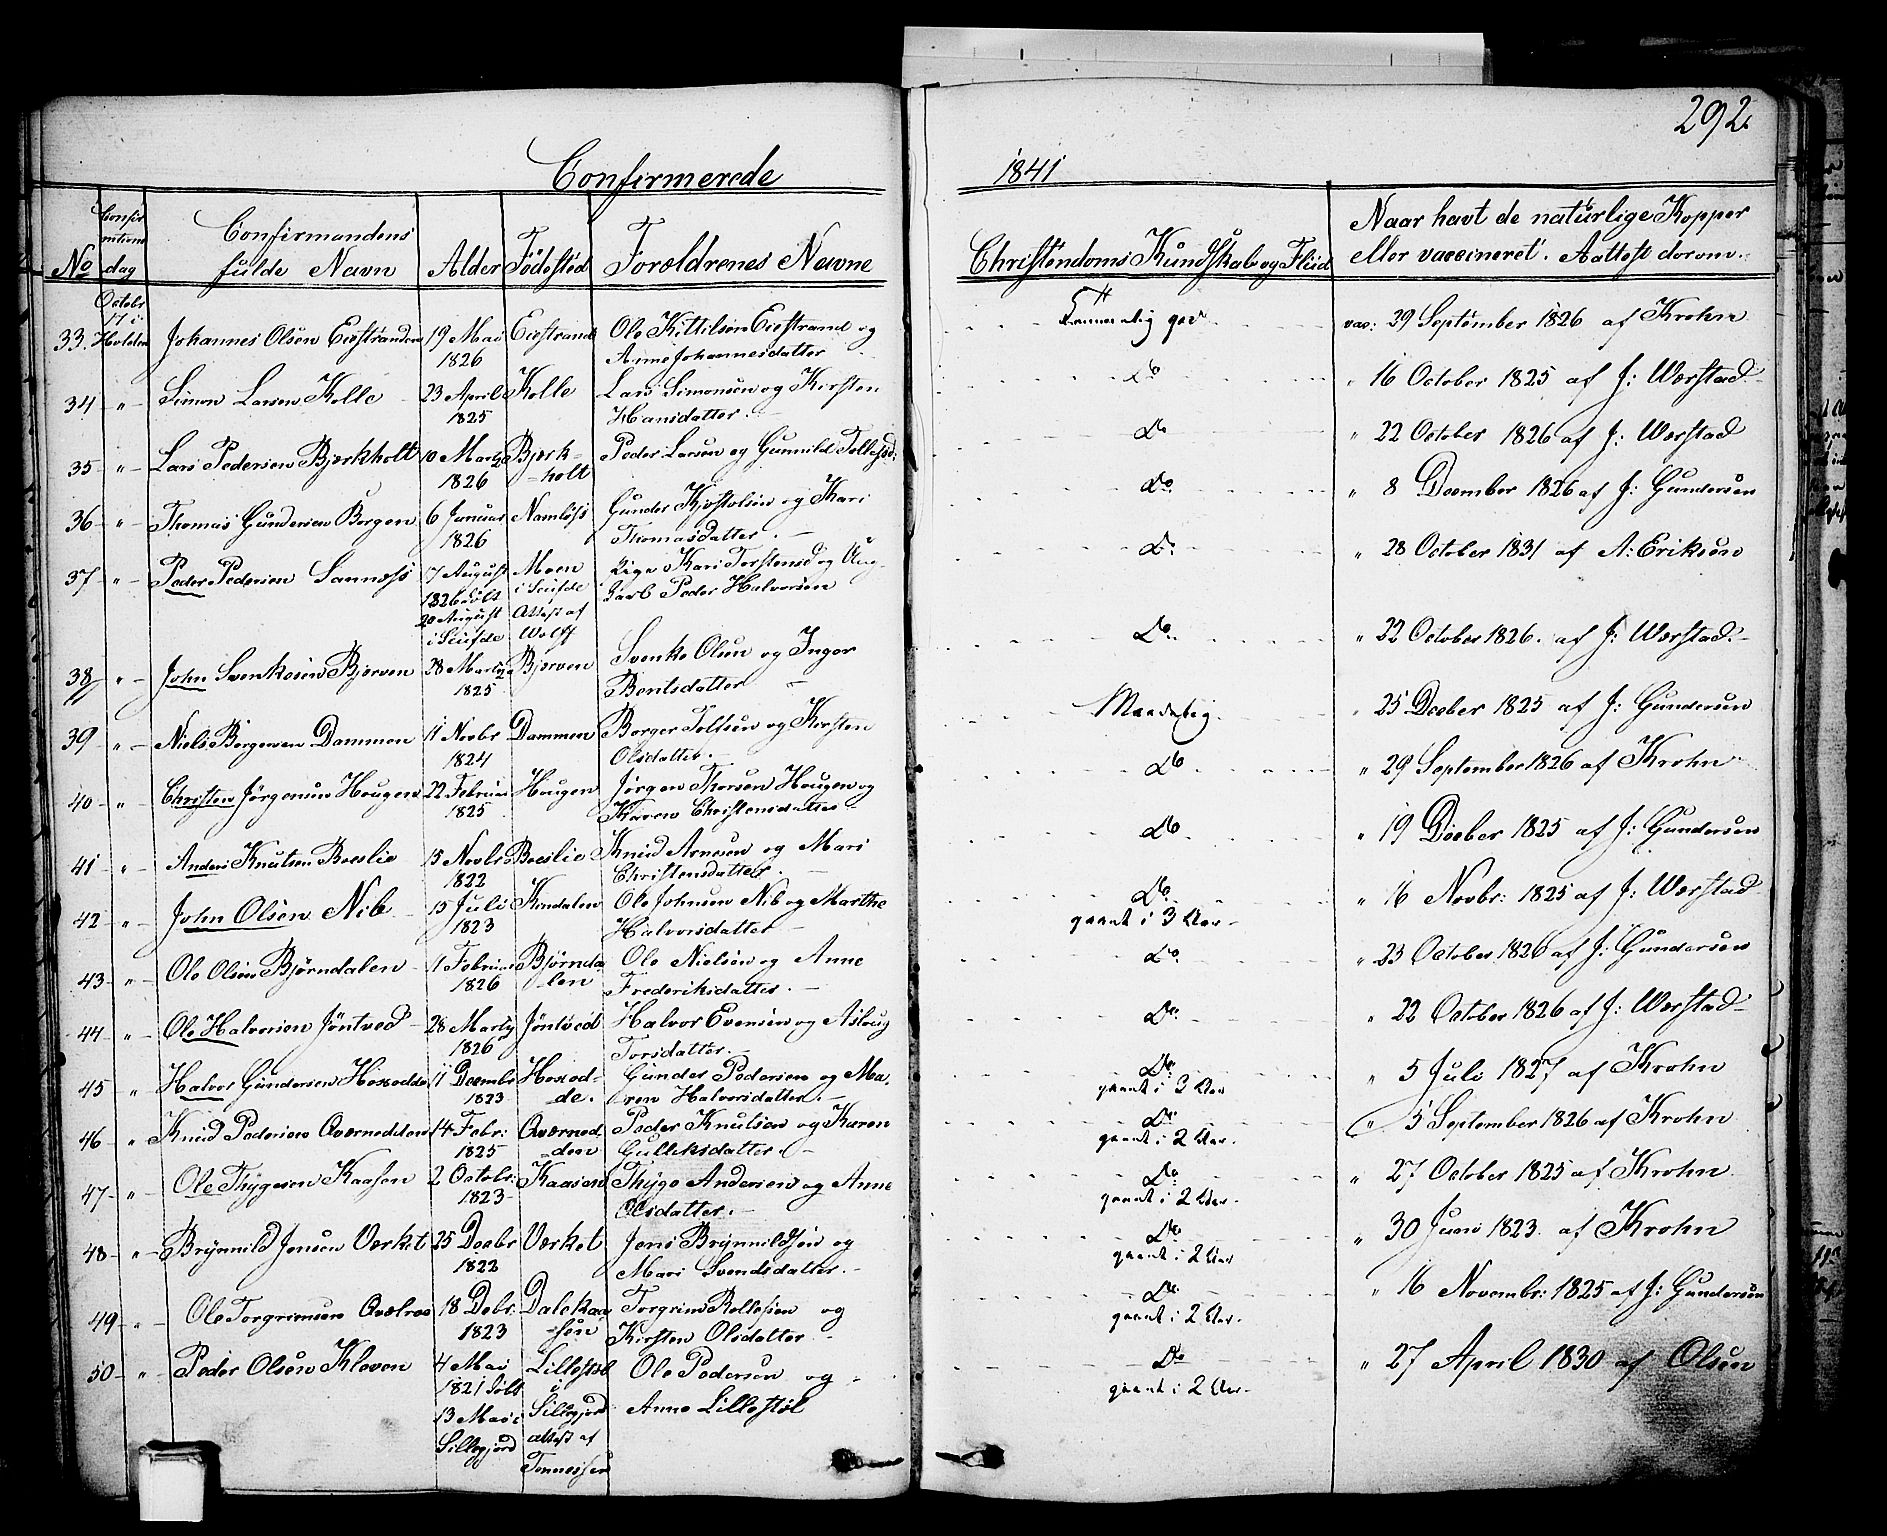 292
Confirmerede
1841
No
Confir
mations
dag
Confirmandens
fulde Navn
Alder
Fødested
Forældrenes Navne
Christendoms Kundskab og Fliid
Naar havt de naturlige Kopper
eller vaccineret. Attest derom.
Octobr
17 i
33. Holden Johannes Olsen Eiestranden 19 Mai Eiestrand Ole Kittilsen Eiestrand og Temmelig god vac: 29 September 1826 af Krohn
1826 Anne Johannesdatter
34 " Simon Larsen Kolle 23 April Kolle Lars Simonsen og Kirsten Do " 16 October 1825 af J: Wærstad
1825 Hansdatter.
35 " Lars Pedersen Bjerkholt 10 Marty Bjerk= Peder Larsen og Gunnild Tollefsd: Do " 22 October 1826 af J: Wærstad
1826 =holt
36 " Thomas Gundersen Borgen 6 Januar Namløs Gunder Kjøstolsen og Kari Do " 8 December 1826 af J: Gundersen
1826 Thomasdatter.
37 " Peder Pedersen Sannæss 7 August Moen Pige Kari Torstensd og Ung= Do " 28 October 1831 af A: Eriksen
1826 døbt i Seufde karl Peder Halvorsen
20 August Attest af
i Seufde Wolff
38 " John Svenkesen Bjerven 28 Marty Bjerven Svenke Olsen og Inger Do " 22 October 1826. af J: Wærstad.
1825 Bentsdatter
39 " Niels Borgersen Dammen 11 Novbr Dammen Borger Tolfsen og Kirsten Maadelig. " 25 Decber 1825 af J: Gundersen
1824 Olsdatter.
40 " Christen Jørgensen Hougen 22 Februar Hougen Jørgen Thorsen Hougen og Do " 29 September 1826 af Krohn
1825 Karen Christensdatter
41 " Anders Knutsen Boeslie 15 Novbr Boeslie Knud Arnesen og Mari Do " 19 Decber 1825 af J: Gundersen
1822 Christensdatter.
42 " John Olsen Nib 15 Juli Kindalen Ole Johnsen Nib og Marthe Do " 16 Novbr: 1825 af J: Wærstad
1823 Halvorsdatter gaaet i 3 Aar
43 " Ole Olsen Bjørndalen 1 Februar Bjørnda Ole Nielsen og Anne Do " 23 October 1826 af J: Gundersen
1826 =len Frederiksdatter.
44 " Ole Halvorsen Jøntved 28 Marty Jøntved Halvor Evensen og Aslaug Do " 22 October 1826 af J: Wærstad
1826 Torsdatter.
45 " Halvor Gundersen Hoxedde 11 Decembr Hoxed= Gunder Pedersen og Ma= Do " 5 Juli 1827 af Krohn
1823 =de. ren Halvorsdatter. gaaet i 3 Aar
46 " Knud Pedersen Qværnedden 14 Febr: Qværned Peder Knutsen og Karen Do " 5 September 1826 af Krohn
1825 =den Gulleksdatter. gaaet i 2 Aar.
47 " Ole Thygesen Kaasen 2 Octobr: Kaasen Thyge Andersen og Anne Do " 27 October 1825 af Krohn
1823 Olsdatter. gaaet i 2 Aar.
48 " Brynnild Jensen Værket 25 Decbr Værket Jens Brynnildsen og Do " 30 Juni 1823. af Krohn
1822 Mari Svendsdatter. gaaet i 2 Aar
49 " Ole Torgrimsen Qvælraa 18 Debr: Dalekaa Torgrim Rollefsen og Do " 16 Novembr: 1825 af J: Gundersen
1823 =sen Kirsten Olsdatter gaaet i 2 Aar.
50 " Peder Olsen Kleven 4 Mai Lillestøl Ole Pedersen og Do " 27 April 1830 af Olsen
1821 døbt i Anne Lillestøl gaaet i 2 Aar.
13 Mai i Sillegjord
Sillegjord attest af
Tønnesen